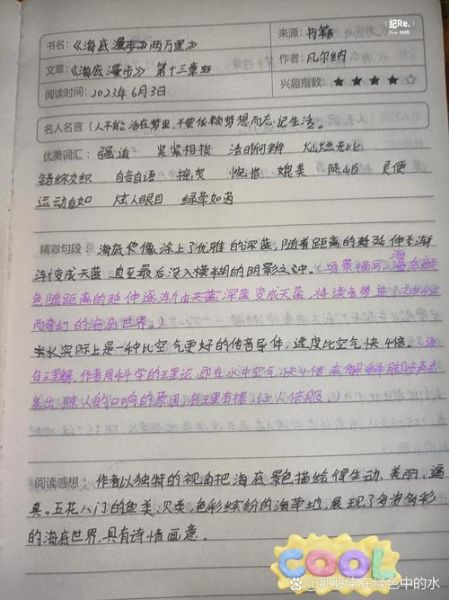 纪Re.
书名:《海底漫步》两万里》
来源:书籍
文章:《海底漫步》第十三章
作者:凡尔纳
阅读时间:2023年6月3日
兴趣指数:★★★★☆
名人名言(人不能活在梦里,不要依赖梦想而忘记生活。
优美词汇:强迫 紧紧相挨 清晰可辨 灿烂无比
错综交织 自言自语 接受 恍惚 媲美 陡峭 灵便
运动自如 炫人眼目 绿茶如茵
精彩句段 海底像涂上了优雅的深蓝,随着距离的延伸逐渐
渐变成天蓝,直至最后没入模糊的阴影之中。(场景描写)海
色随距离的延伸逐渐由天蓝深蓝变成天蓝,将读者带
而奇幻的海底世界。
实际上是一种比空气更好的传音导体,速度比空气快4倍。
自己理解,作者用科学的理论,即在水中空气快4倍
发出的响的原因,有理有据,让人信服。)
阅读感想:作者以独特的视角把海底景色描绘得生动、美丽、逼
真。五花八门的鱼类、贝类,色彩缤纷的海草地,展现了多姿多彩
的海底世界,具有诗情画意。
COOL